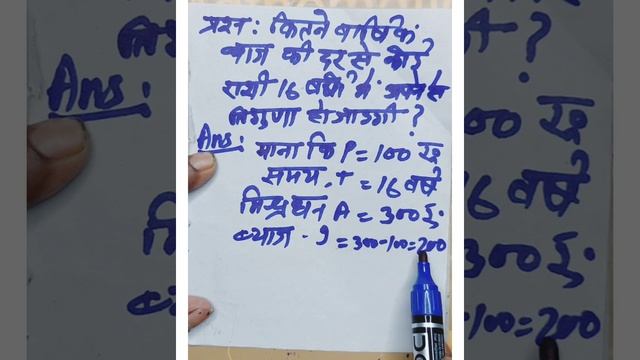 प्रश्न: कितने वार्षिक
ब्याज की दर से कोई
राशी 16 वर्षो में अपने से
तिगुणा हो जाएगी ?
Ans:
माना कि P = 100 रु
समय, t = 16 वर्ष
मिश्रधन A = 300 रु.
ब्याज - I = 300-100=200